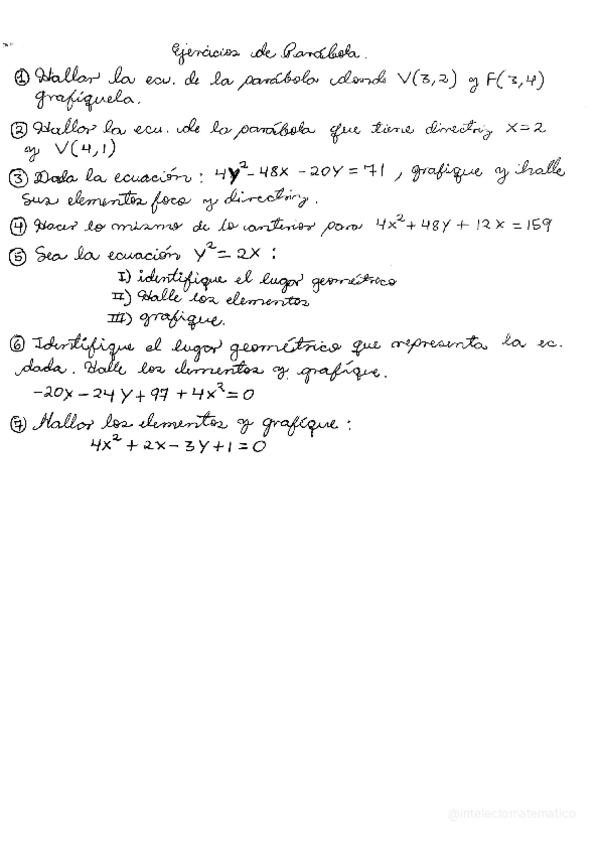 Ejercicios de Parábola.
① Hallar la ecu. de la parábola donde V(3,2) y F(3,4)
grafíquela.
② Hallar la ecu. de la parábola que tiene directriz x=2
y V(4,1)
③ Dada la ecuación: 4y²-48x-20y=71, grafique y halle
sus elementos foco y directriz.
④ Hacer lo mismo de lo anterior para 4x²+48y+12x=159
⑤ Sea la ecuación y²=2x:
I) identifique el lugar geométrico
II) Halle los elementos
III) grafique.
⑥ Identifique el lugar geométrico que representa la ec.
dada. Halle los elementos y grafíque.
-20x-24y+97+4x²=0
⑦ Hallar los elementos y grafíque:
4x²+2x-3y+1=0
@intelectomatematico